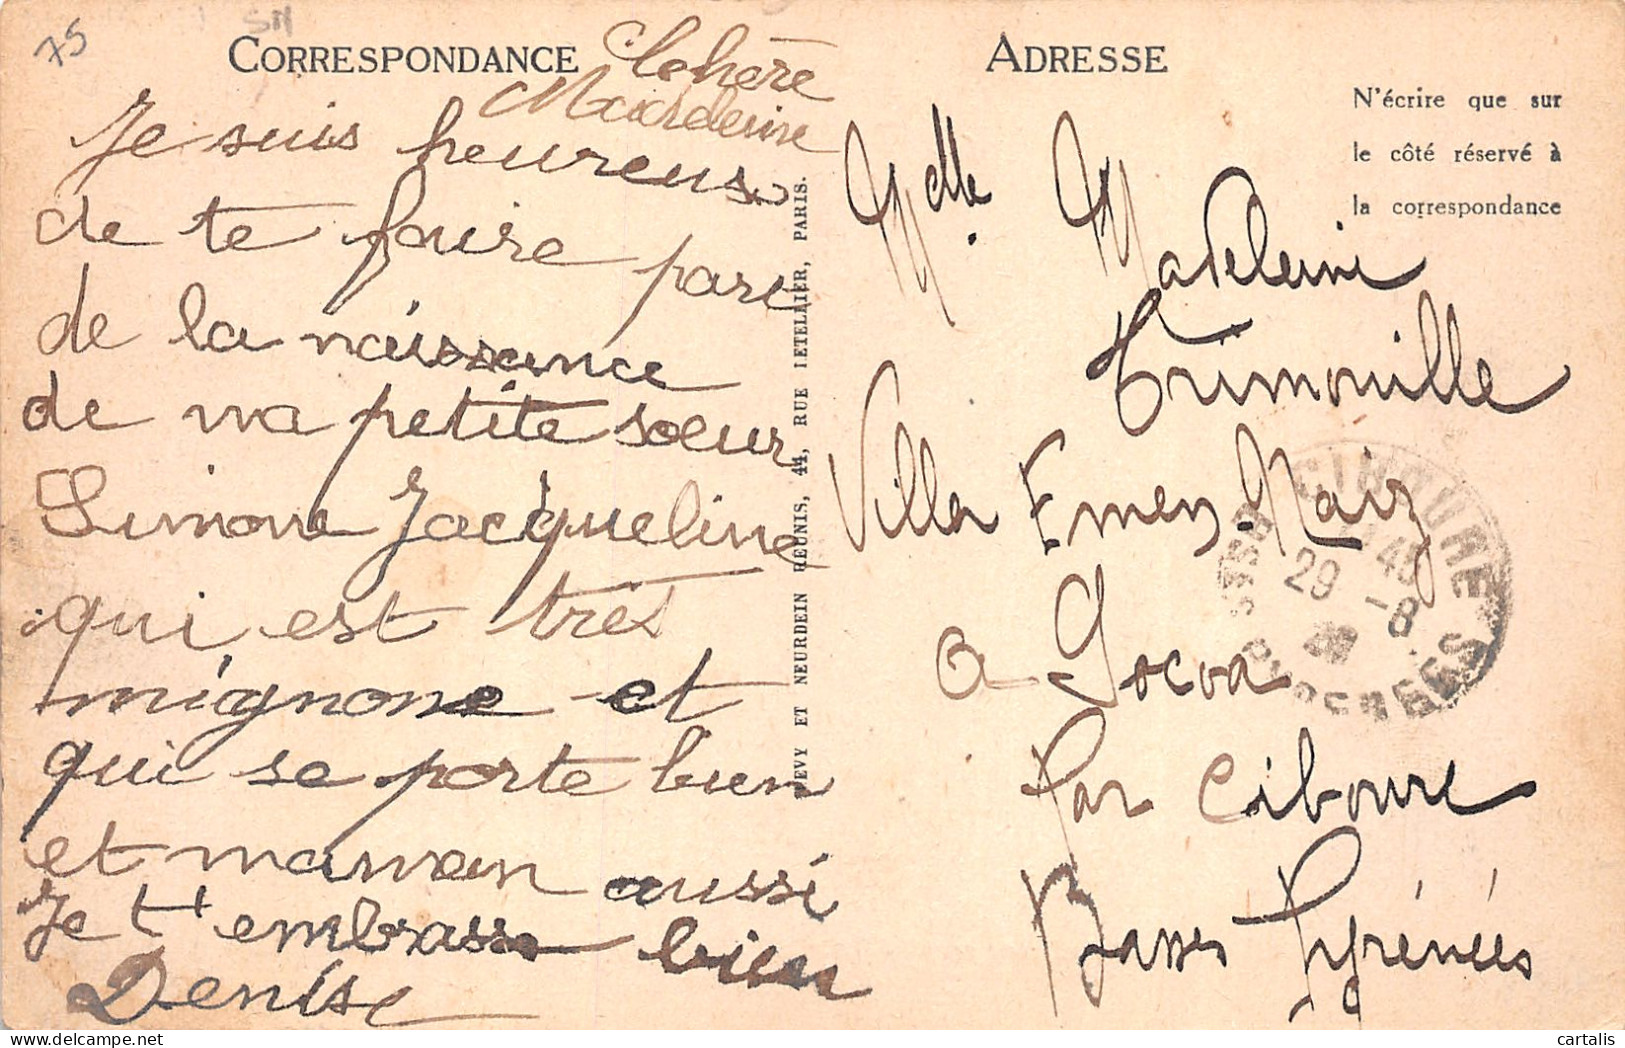 75
CORRESPONDANCE
ma chère
Madeleine
Je suis heureuse
de te faire part
de la naissance
de ma petite sœur
Simone Jacqueline
qui est très
mignone et
qui se porte bien
et maman aussi
Je t'embrasse bien
Denise
LEVY ET NEURDEIN REUNIS, 44, RUE LETELLIER, PARIS.
ADRESSE
N'écrire que sur
le côté réservé à
la correspondance
Melle Madeleine
Trimouille
Villa Emen-Naiz
a Socoa
Par Ciboure
Basses Pyrénées
CIBOURE
45
29 -8
BSSES PYRENEES
cartalis